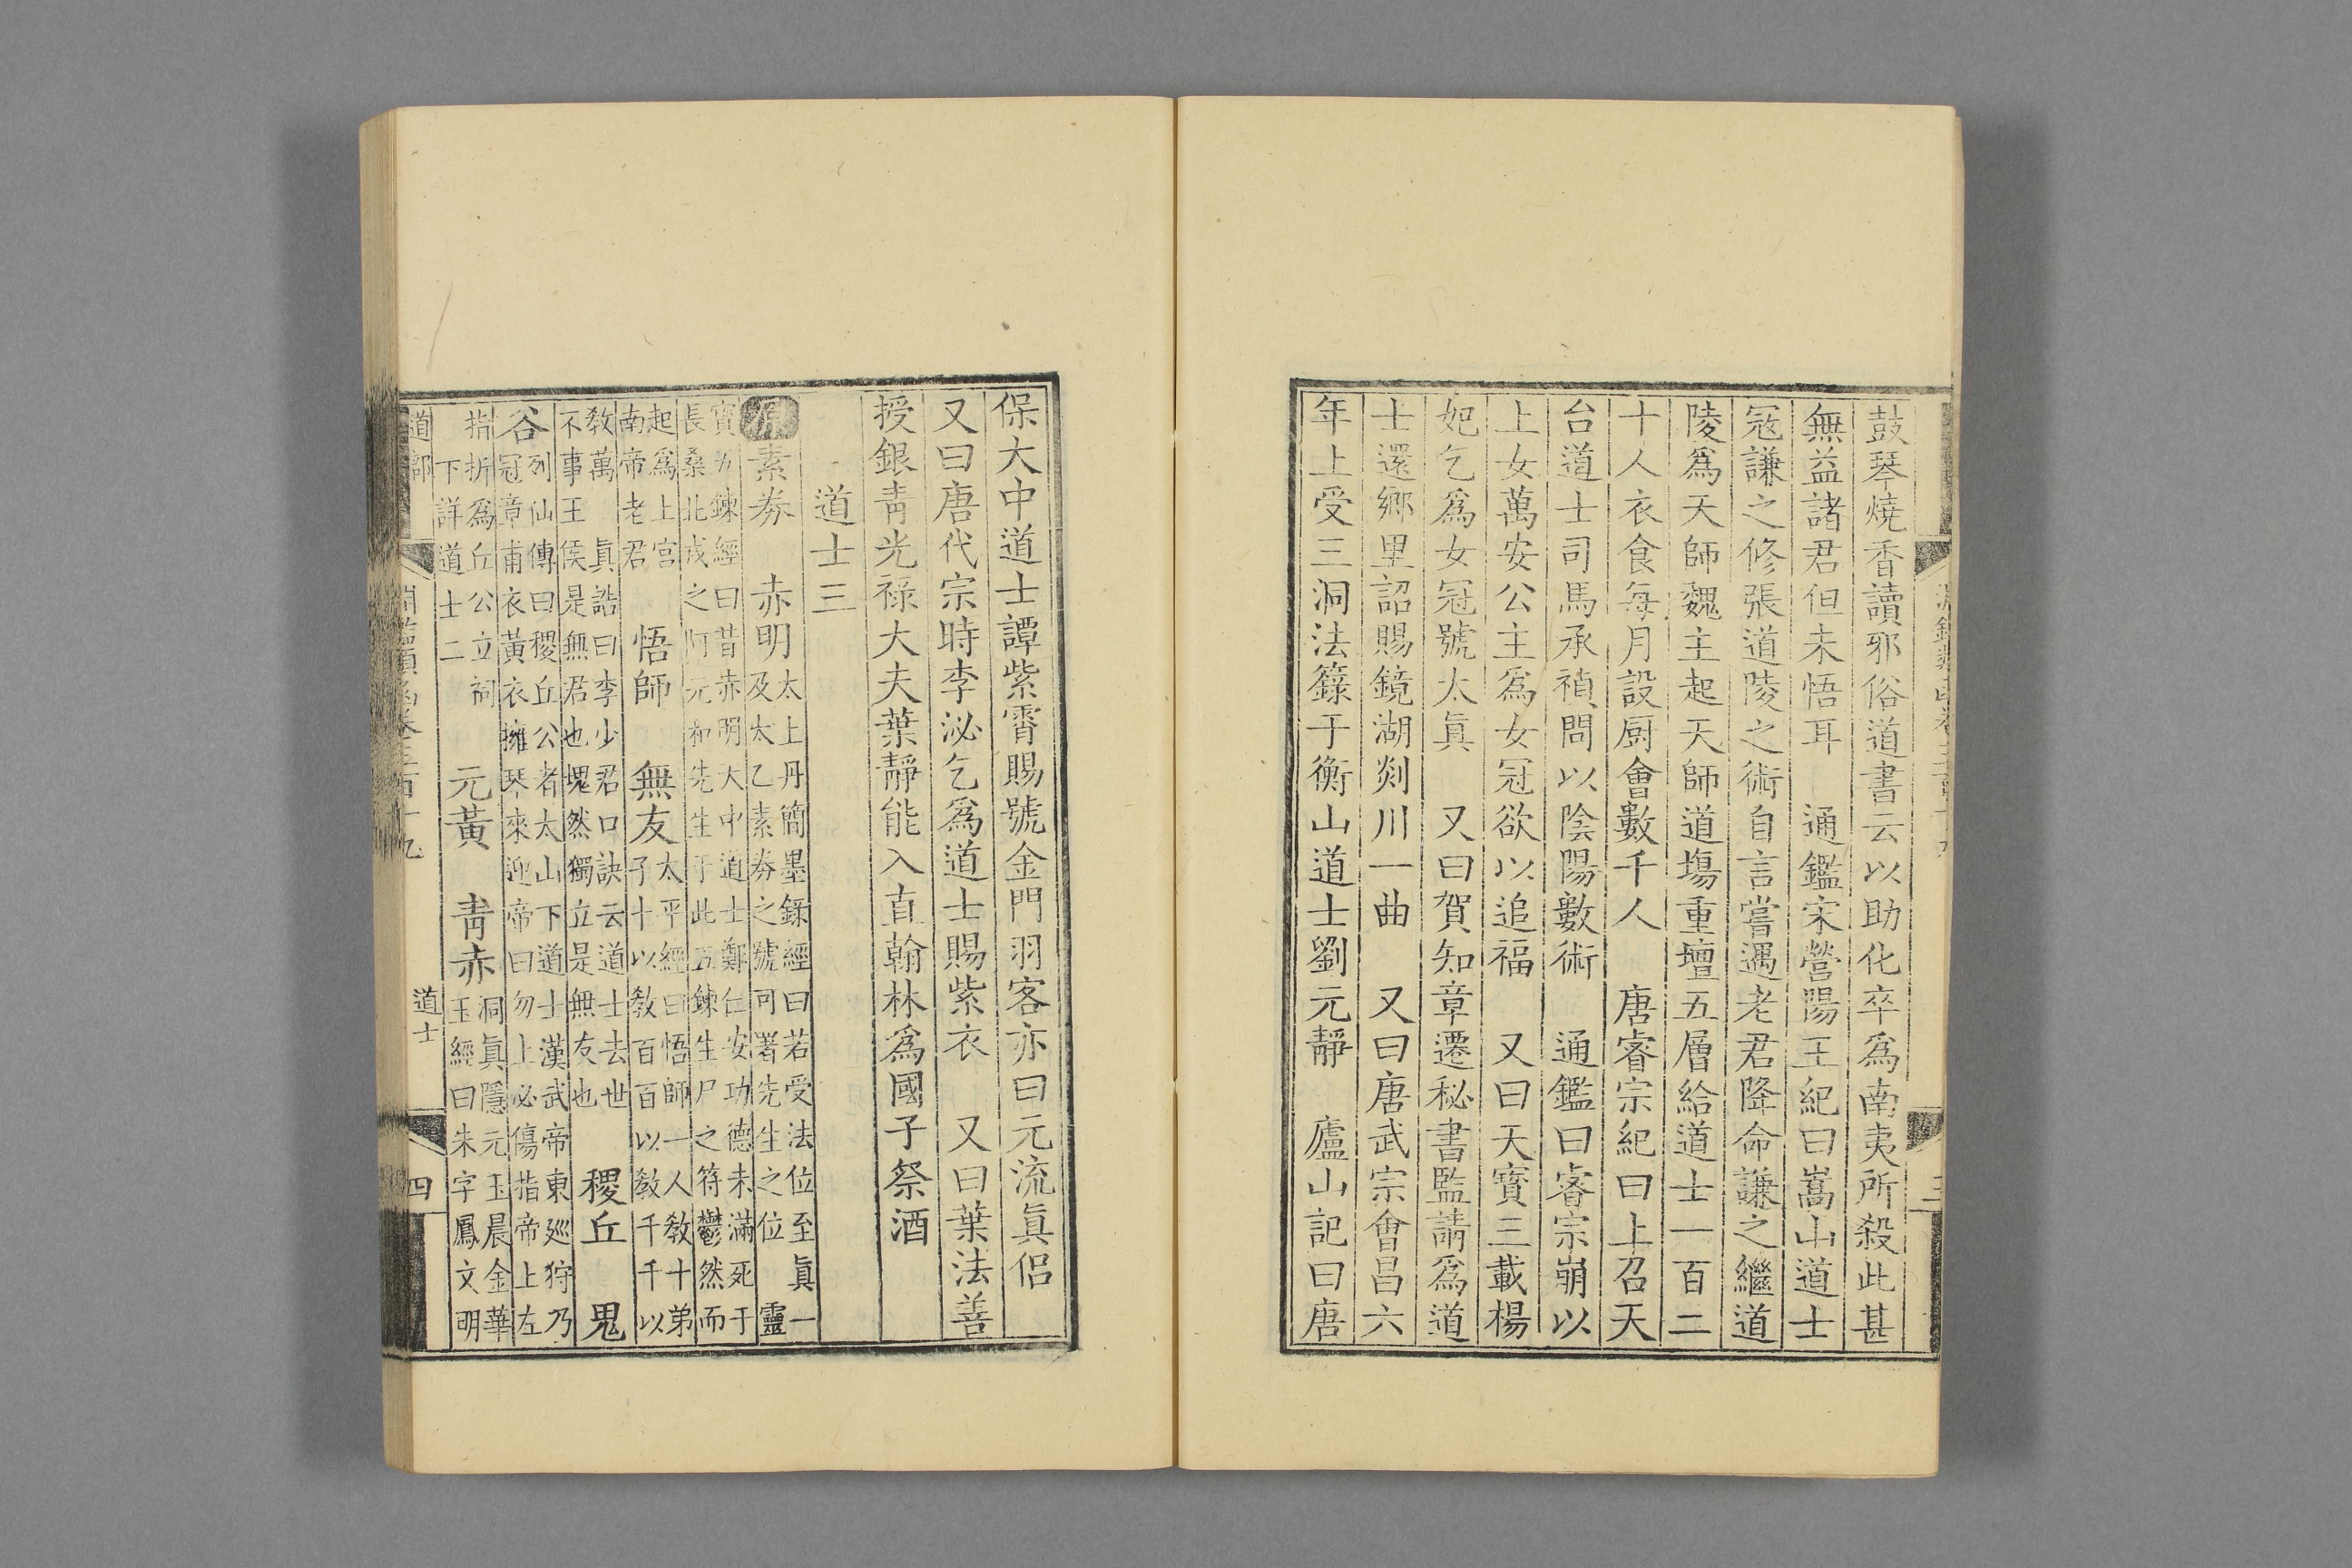 鼓琴燒香讀邪俗道書云以助化卒爲南夷所殺此甚
無益諸君但未悟耳　通鑑宋營陽王紀曰嵩山道士
寇謙之修張道陵之術自言嘗遇老君降命謙之繼道
陵爲天師魏主起天師道場重壇五層給道士一百二
十人衣食每月設厨會數千人　唐睿宗紀曰上召天
台道士司馬承禎問以陰陽數術　通鑑曰睿宗崩以
上女萬安公主爲女冠欲以追福　又曰天寶三載楊
妃乞爲女冠號太眞　又曰賀知章遷秘書監請爲道
士還鄉里詔賜鏡湖剡川一曲　又曰唐武宗會昌六
年上受三洞法籙于衡山道士劉元靜　廬山記曰唐
保大中道士譚紫霄賜號金門羽客亦曰元流眞侶
又曰唐代宗時李泌乞爲道士賜紫衣　又曰葉法善
授銀青光祿大夫葉靜能入直翰林爲國子祭酒
道士三
原素券　赤明太上丹簡墨籙經曰若受法位至眞一
及太乙素券之號可署先生之位　靈
寶五鍊經曰昔赤明大中道士鄭仁安功德未滿死于
長桑北戎之阿元和先生于此五鍊生尸之符鬱然而
起爲上宮
南帝老君　悟師　無友太平經曰悟師一人敎十弟
子十以敎百百以敎千千以
敎萬　眞誥曰李少君口訣云道士去世
不事王侯是無君也塊然獨立是無友也　稷丘　鬼
谷列仙傳曰稷丘公者太山下道士漢武帝東廵狩乃
冠章甫衣黃衣擁琴來迎帝曰勿上必傷指帝上左
指折爲丘公立祠
下詳道士二　元黃　青赤洞眞隱元玉晨金華
玉經曰朱字鳳文明
道部
淵鑑類函卷三百十九
道士
四